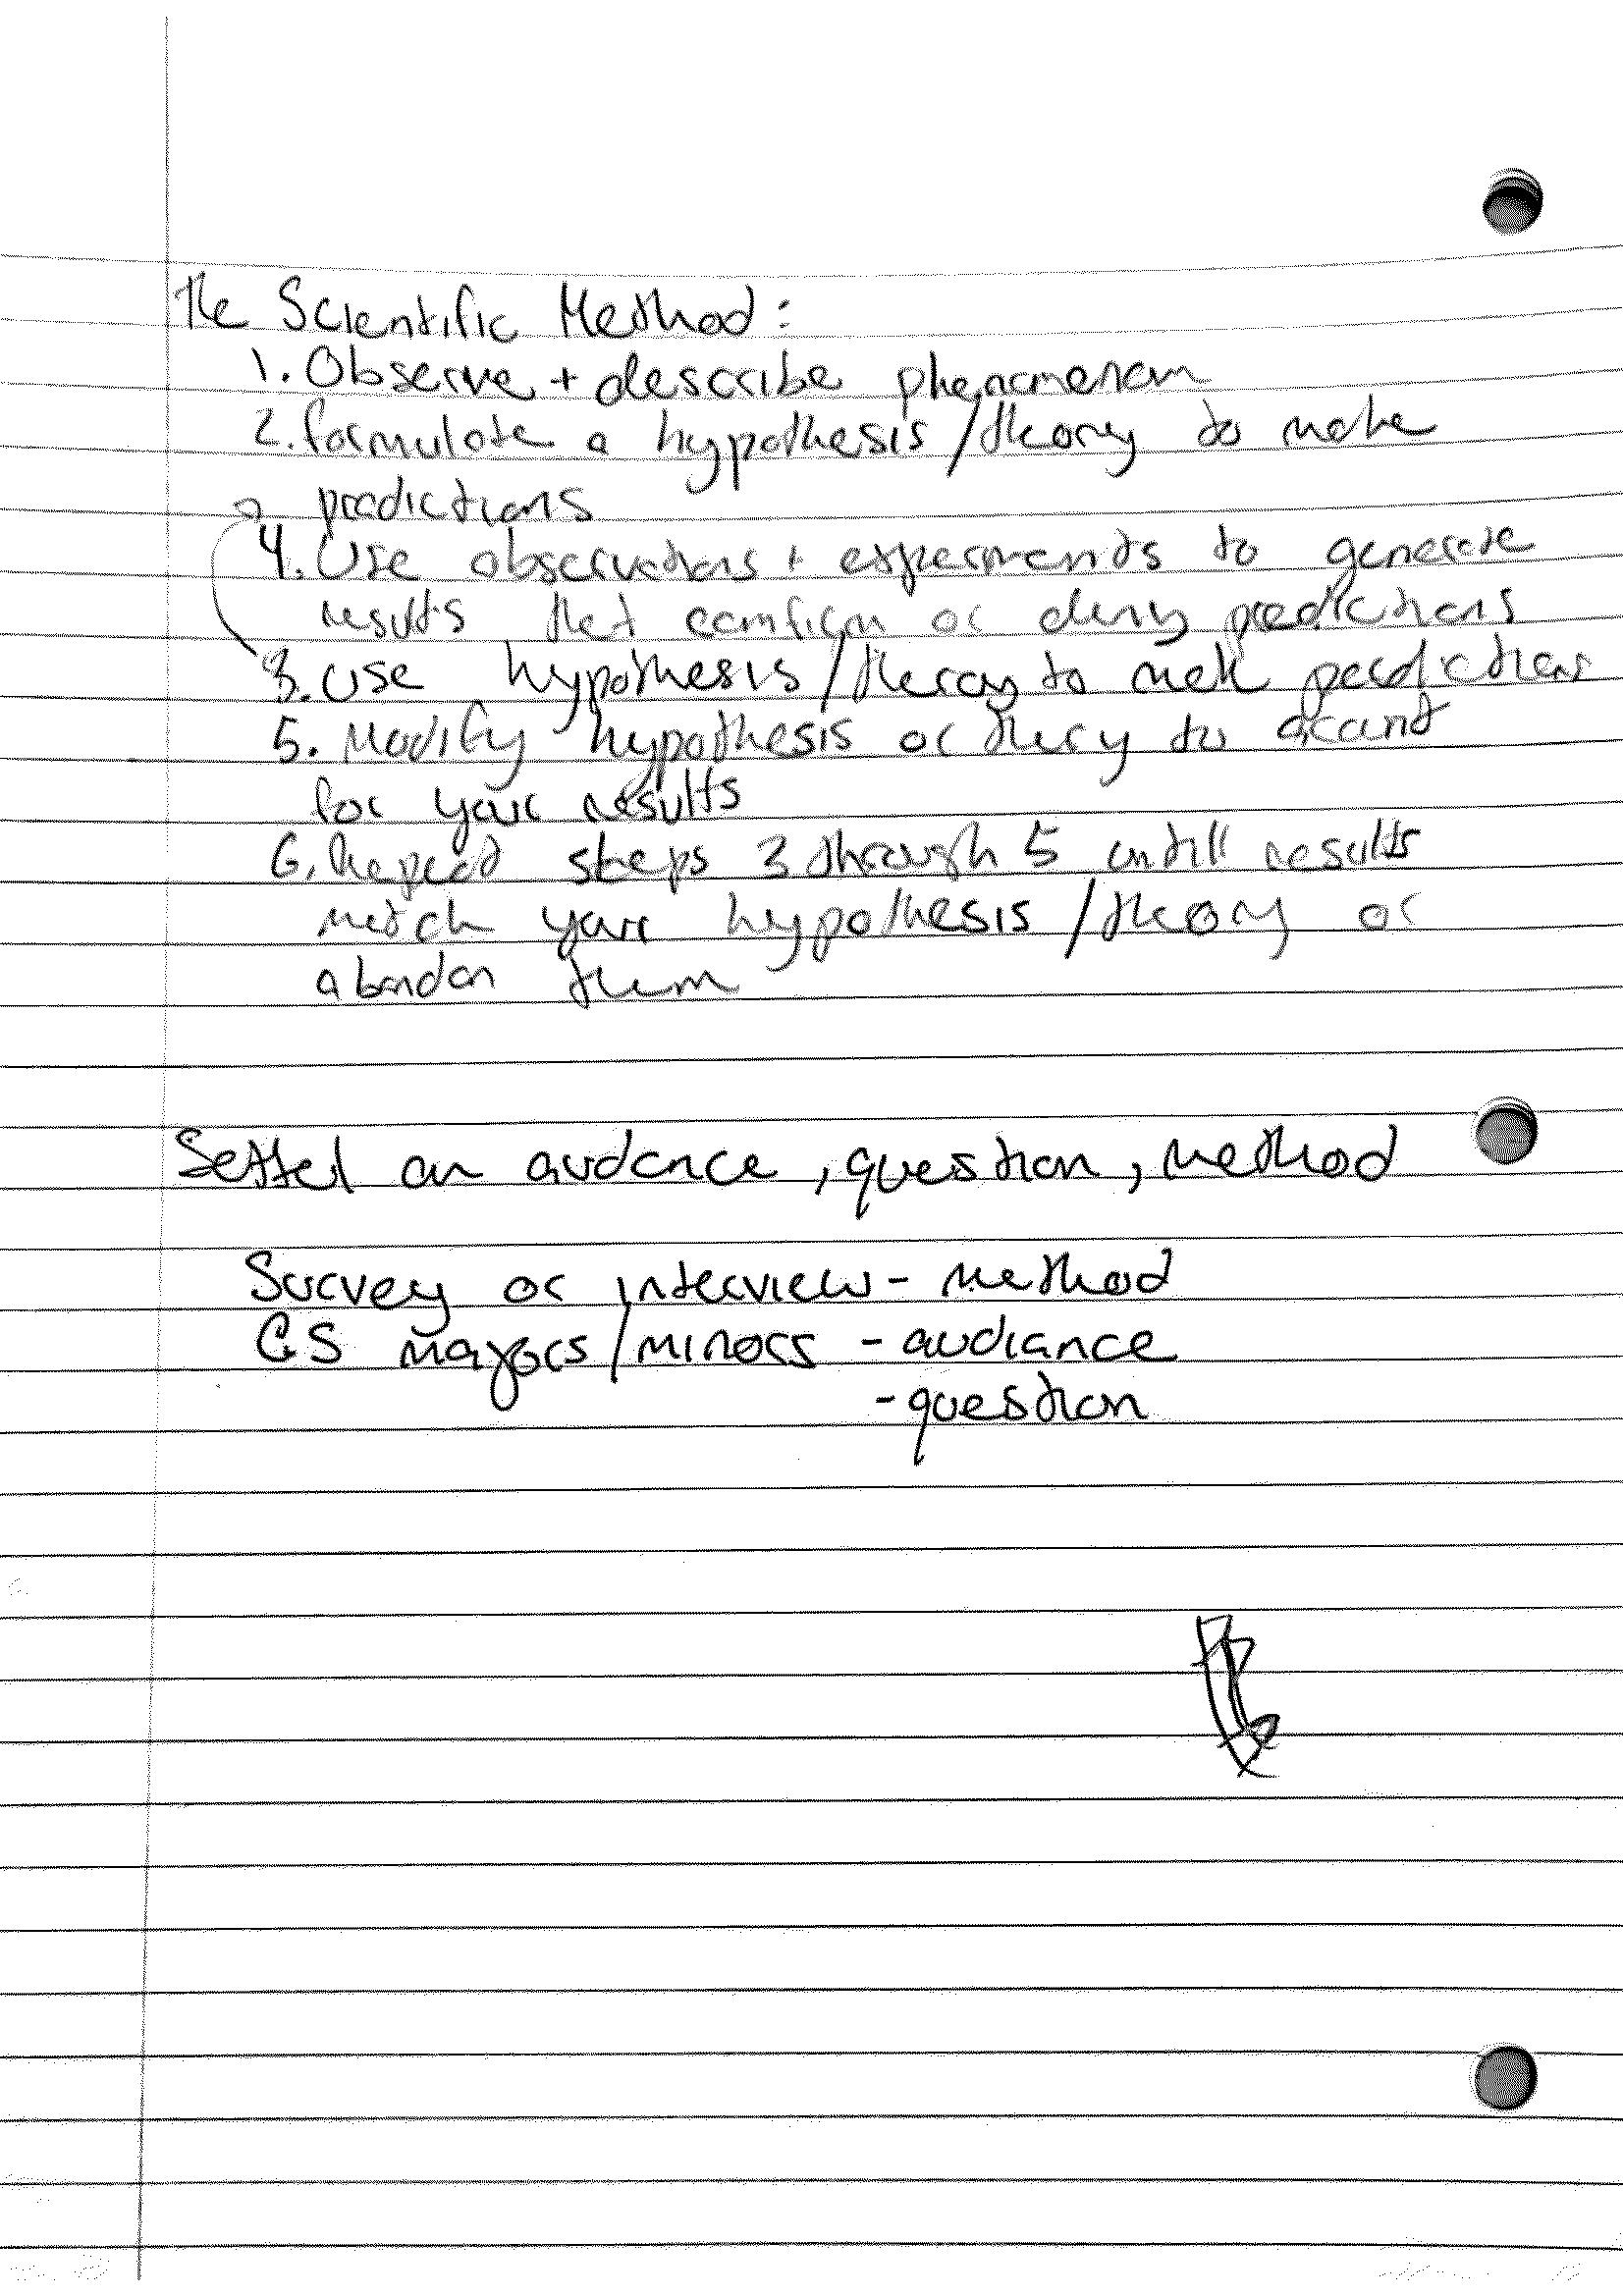 The Scientific Method:
1. Observe + describe phenomenom
2. formulate a hypothesis/theory to make
predictions
4. Use observations + experiments to generate
results that comfirm or deny predictions
3. Use hypothesis/theory to make predictions
5. Modify hypothesis or thery to acount
for your results
6. Repeat steps 3 through 5 untill results
match your hypothesis/theory or
abandon them
Settel an audence, question, method
Survey or interview - method
CS majors/minors - audiance
- question